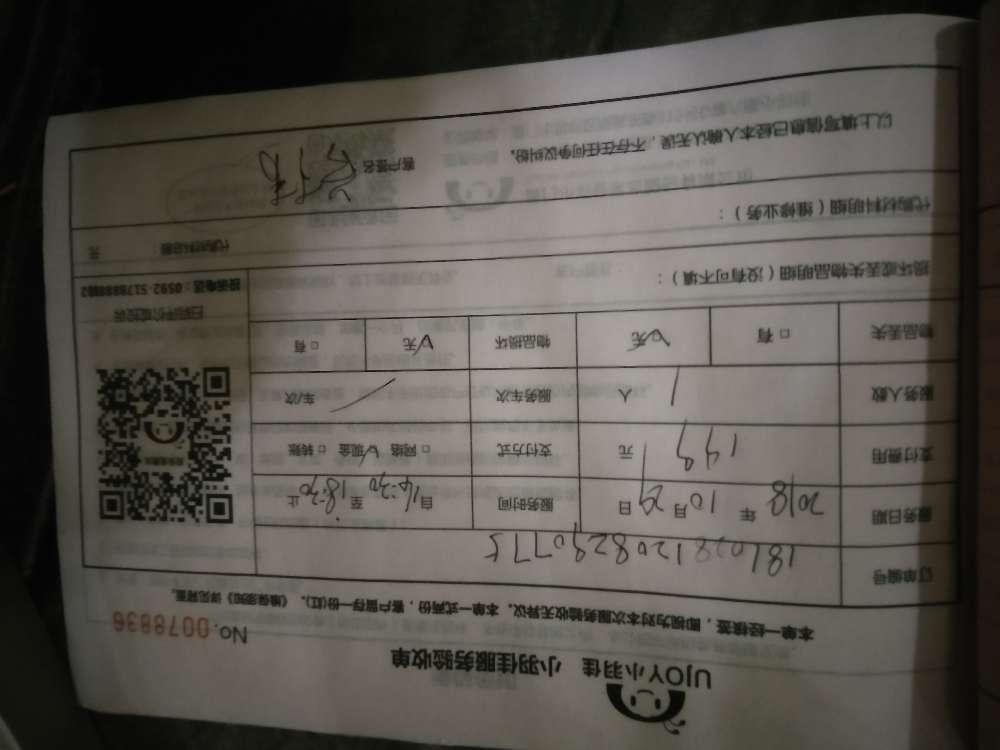 UjOY小羽佳 小羽佳服务验收单
No. 0078836
本单一经核签，即视为对本次服务验收无异议。本单一式两份，客户留存一份(红)。《维保须知》详见背面。
订单编号 181028120829077 5
服务日期 2018 年 10 月 29 日 服务时间 自 16:30 至 18:30 止
支付费用 149 元 支付方式 □ 网络 ☑ 现金 □ 转账
服务人数 1 人 服务车次 / 车/次
物品丢失 □ 有 ☑ 无 物品损坏 ☑ 无 □ 有
扫码评价或投诉
损坏或丢失物品明细（没有可不填）：
代购材料明细（维修业务）：
代购材料总额： 元
以上填写信息已经本人确认无误，不存在任何争议纠纷。
客户签名